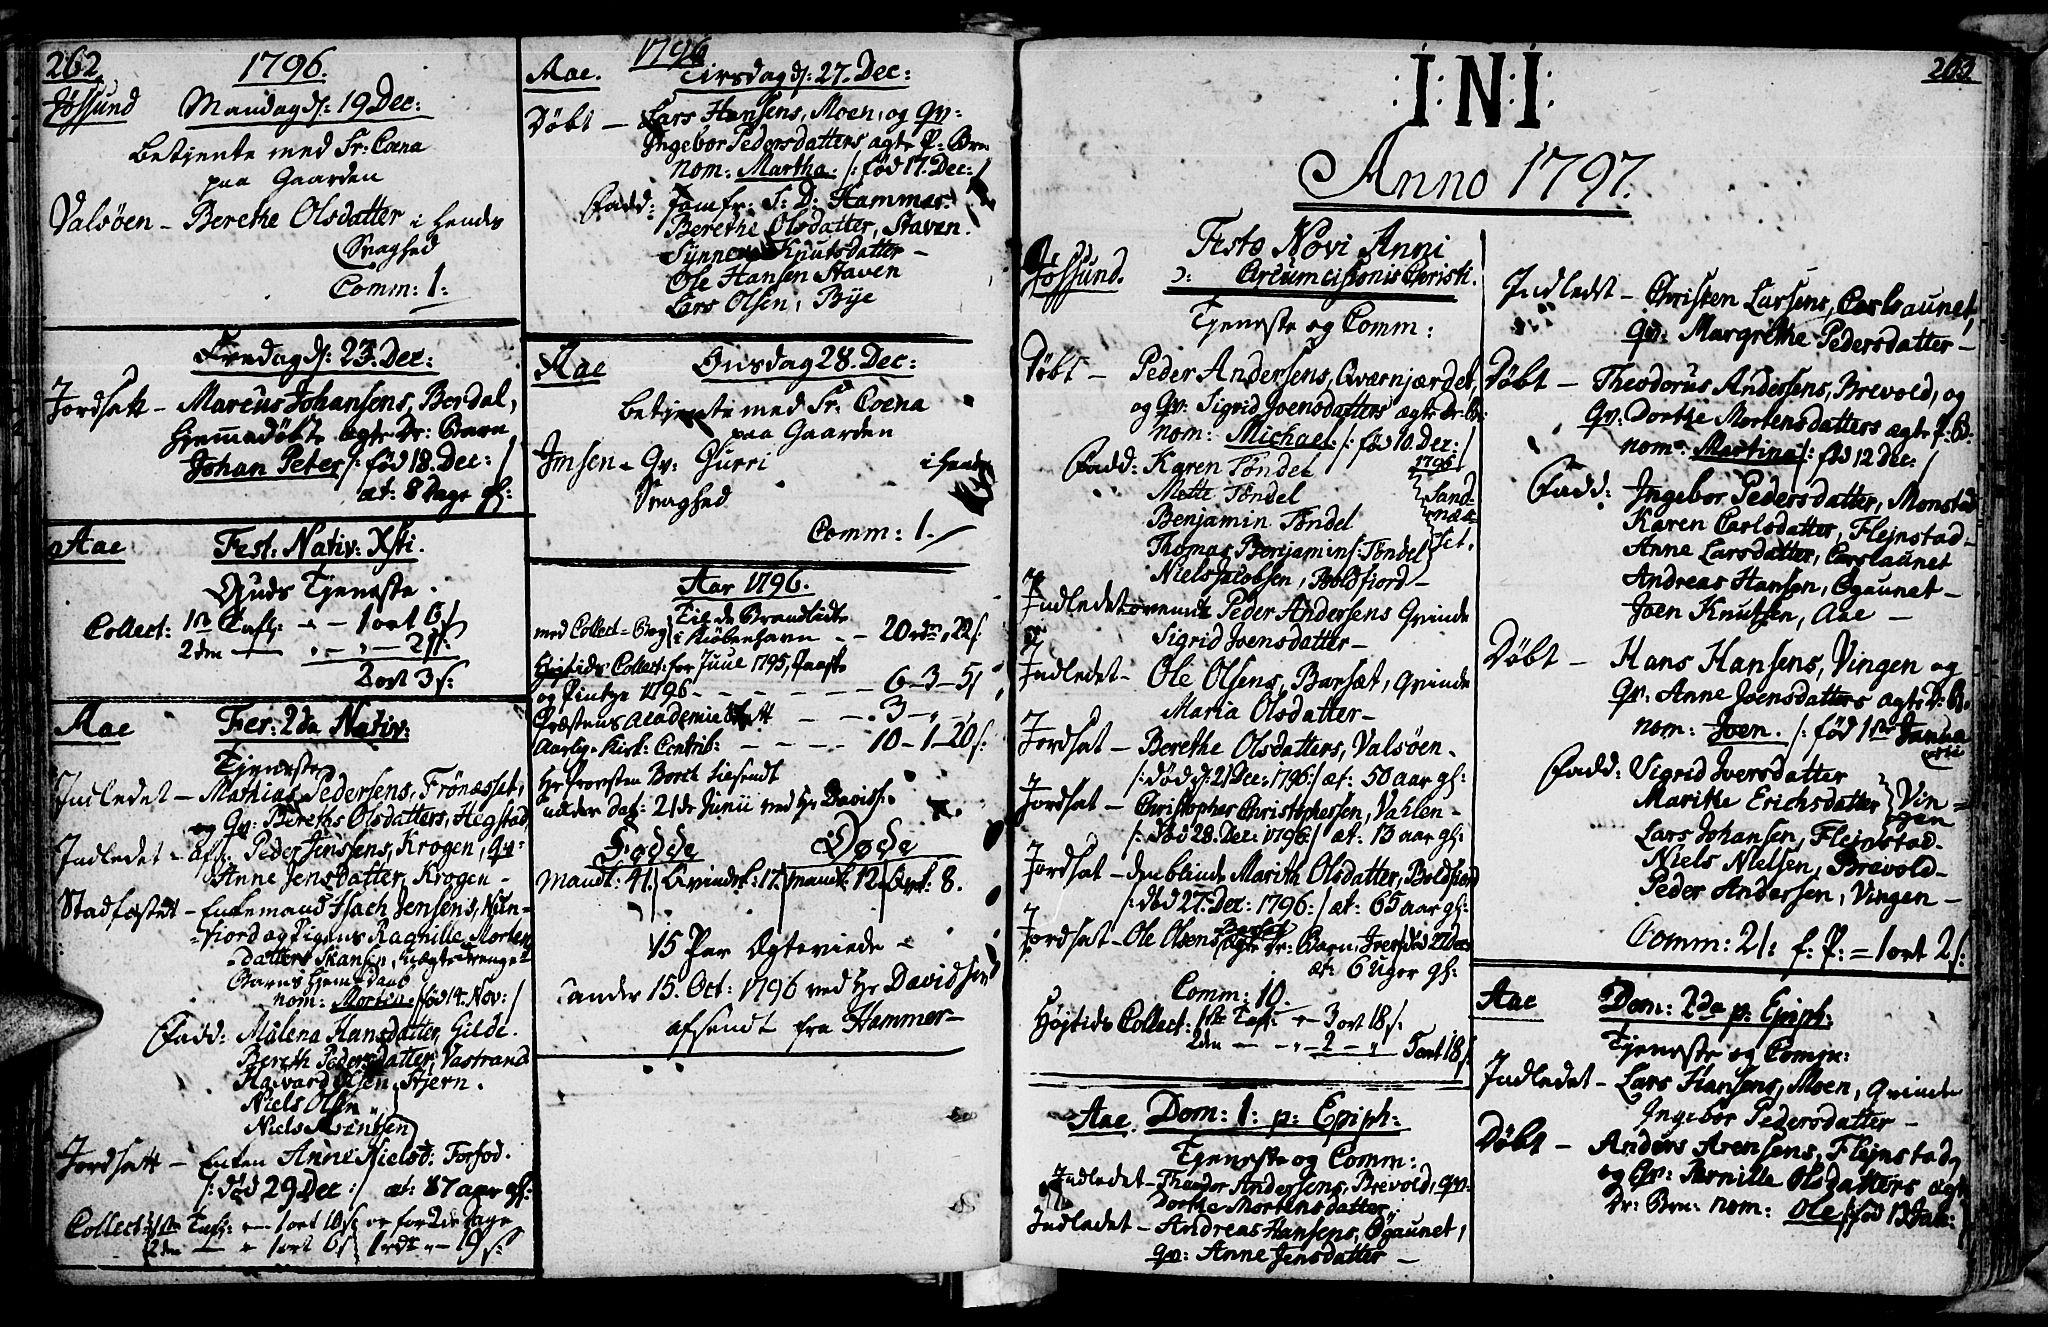 262
1796.
Jøssund Mandag d: 19 Dec:
betjente med Sr: Coena
paa Gaarden
Valsøen - Berethe Olsdatter i hendes
Svaghed
Comm: 1:
Fredag d: 23. Dec:
Jordsatt - Marcus Johansens, Berdal,
hjemmedøbte ægte Dr: Barn
Johan Peter /: fød 18. Dec: /
æt: 8 Dage gl:
Aae Fest: Nativ: Xsti.
Guds Tjeneste.
Collect: 1ste Tafl: - - 1 ort 6 s
2den - - - - 21 s:
2 ort 3 s:
Aae Fer: 2da Nativ:
Tjeneste
Indledet - Mathias Pedersens, Frönæsset,
og Qv: Berethe Olsdatters, Hegstad
Indledet - Peder Jenssens, Krogen, Qv:
Anne Jensdatter, Krogen -
Stadfæstet - Enkemand Isach Jensens, Nun-
fiord og Pigens Ragnille Morten
datters uægte Drenge
Barns Hjemedaab
nom: Morten /: fød 14. Nov: /
Fadd: Malena Hansdatter, Gilde.
Bereth Pedersdatter, Vastrand
Havard Olsen, Stjern.
Niels Olsen
Niels
Jordsatt - Enken Anne Nielsd: Forfod.
/: død 29 Dec :/ æt: 87 aar gl:
Collect: 1ste Tafl: - 1 ort 10 s
2den - - 1 ort 6 s
1796
Aae. Tirsdag d: 27. Dec:
Døbt - Lars Hansens, Moen, og Qv:
Ingebor Pedersdatters ægte P: Brn
nom: Martha /: fød 17. Dec: /
Fadd: Jomfr: S: D: Hammer
Berethe Olsdatter, Staven.
Synnev Knutsdatter -
Ole Hansen Staven
Lars Olsen, Bye
Aae Onsdag 28. Dec:
betjente med Sr: Coena
paa Gaarden
Jmsen - Qv: Gurri i hendes
Svaghed
Comm: 1.
Aar 1796.
Til de Brandlidte
med Collect - Bog i Kiøbenhavn - - 20 rdr, 22 s:
Høitids Collect: for Juul 1795, Paaske
og Pintze 1796 - - - - - - 6 - 3 - 5 s
Præstens Academie Skatt - - - 3 - „ - „
Aarlig Kirk: Contrib: - - - - 10 - 1 - 20 s:
Hr Provsten Borch tilsendt
under Dat: 21de Junii ved Hr Davids:
Fødde Døde
Mandk: 41. Qvindk: 17. mandk: 12. Qvk: 8.
15 Par Ægteviede -
15. Oct: 1796 ved Hr Davidsen
afsendt fra Hammer -
I: N: I:
263
Anno 1797.
Jøssund. Festo Novi Anni
ɔ: Circumcisionis Christi.
Tjeneste og Comm:
Døbt - Peder Andersens, Qværnjærdet,
og Qv: Sigrid Joensdatters ægte Dr: Br:
nom: Michael /: fød 10. Dec: /
1796
Fadd: Karen Töndel
Mette Töndel
Benjamin Töndel
Thomas Benjamins: Töndel
Sand-
næs
set.
Niels Jacobsen, Boldfiord -
Indledet ovenm: Peder Andersens Qvinde
Sigrid Joensdatter -
Indledet - Ole Olsens, Barsæt, Qvinde
Maria Olsdatter -
Jordsat - Berethe Olsdatters, Valsøen -
/: død d: 21 Dec: 1796 :/ æt: 50 aar gl:
Jordsat - Christopher Christophersen, Vahlen -
/: død 28. Dec: 1796 :/ æt: 13 aar gl:
Jordsat - den blinde Marith Olsdatter, Boldfiord
/: død 27. Dec: 1796 :/ æt: 65 aar gl:
Jordsat - Ole Olsens, Barsæt
ægte Dr: Barn, Iver, død 22 Dec
æt: 6 uger gl:
Comm: 10.
Høitids Collect: 1ste Tafl: - 3 ort 18 s:
2den - - „ - 2 - „ 5 ort 18 s
Aae. Dom: 1: p: Epiph:
Tjeneste og Comm:
Indledet - Theodor Andersens, Brevold, Qv:
Dorthe Mortensdatter.
Indledet - Andreas Hansens, Øgaunet,
Qv: Anne Jensdatter -
Indledet - Christen Larsens, Carlsaunet,
Qv: Margrethe Pedersdatter -
Døbt - Theodorus Andersens, Brevold, og
Qv: Dorthe Mortensdatters ægte P: B:
nom: Martina /: fød 12 Dec: /
Fadd: Ingebor Pedersdatter, Monstad
Karen Carlsdatter, Flejnstad -
Anne Larsdatter, Carlsaunet
Andreas Hansen, Øgaunet -
Joen Knutsen, Aae -
Døbt - Hans Hansens, Vingen og
Qv: Anne Joensdatters ægte D: B:
nom: Joen. /: fød 1ste Janua
rii
Fadd: Sigrid Iversdatter
Maritte Erichsdatter
Vin-
gen
Lars Johansen, Flejnstad.
Niels Nielsen, Brevold -
Peder Andersen, Vingen -
Comm: 21: f: P: = 1 ort 2 s:
Aae Dom: 2da p: Epiph:
Tjeneste og Comm:
Indledet - Lars Hansens, Moen, Qvinde
Ingebor Pedersdatter -
Døbt - Anders Arensens, Flejnstad,
og Qv: Pernille Olsdatters ægte
Dr: Brn: nom: Ole /: fød 13 Jan: /